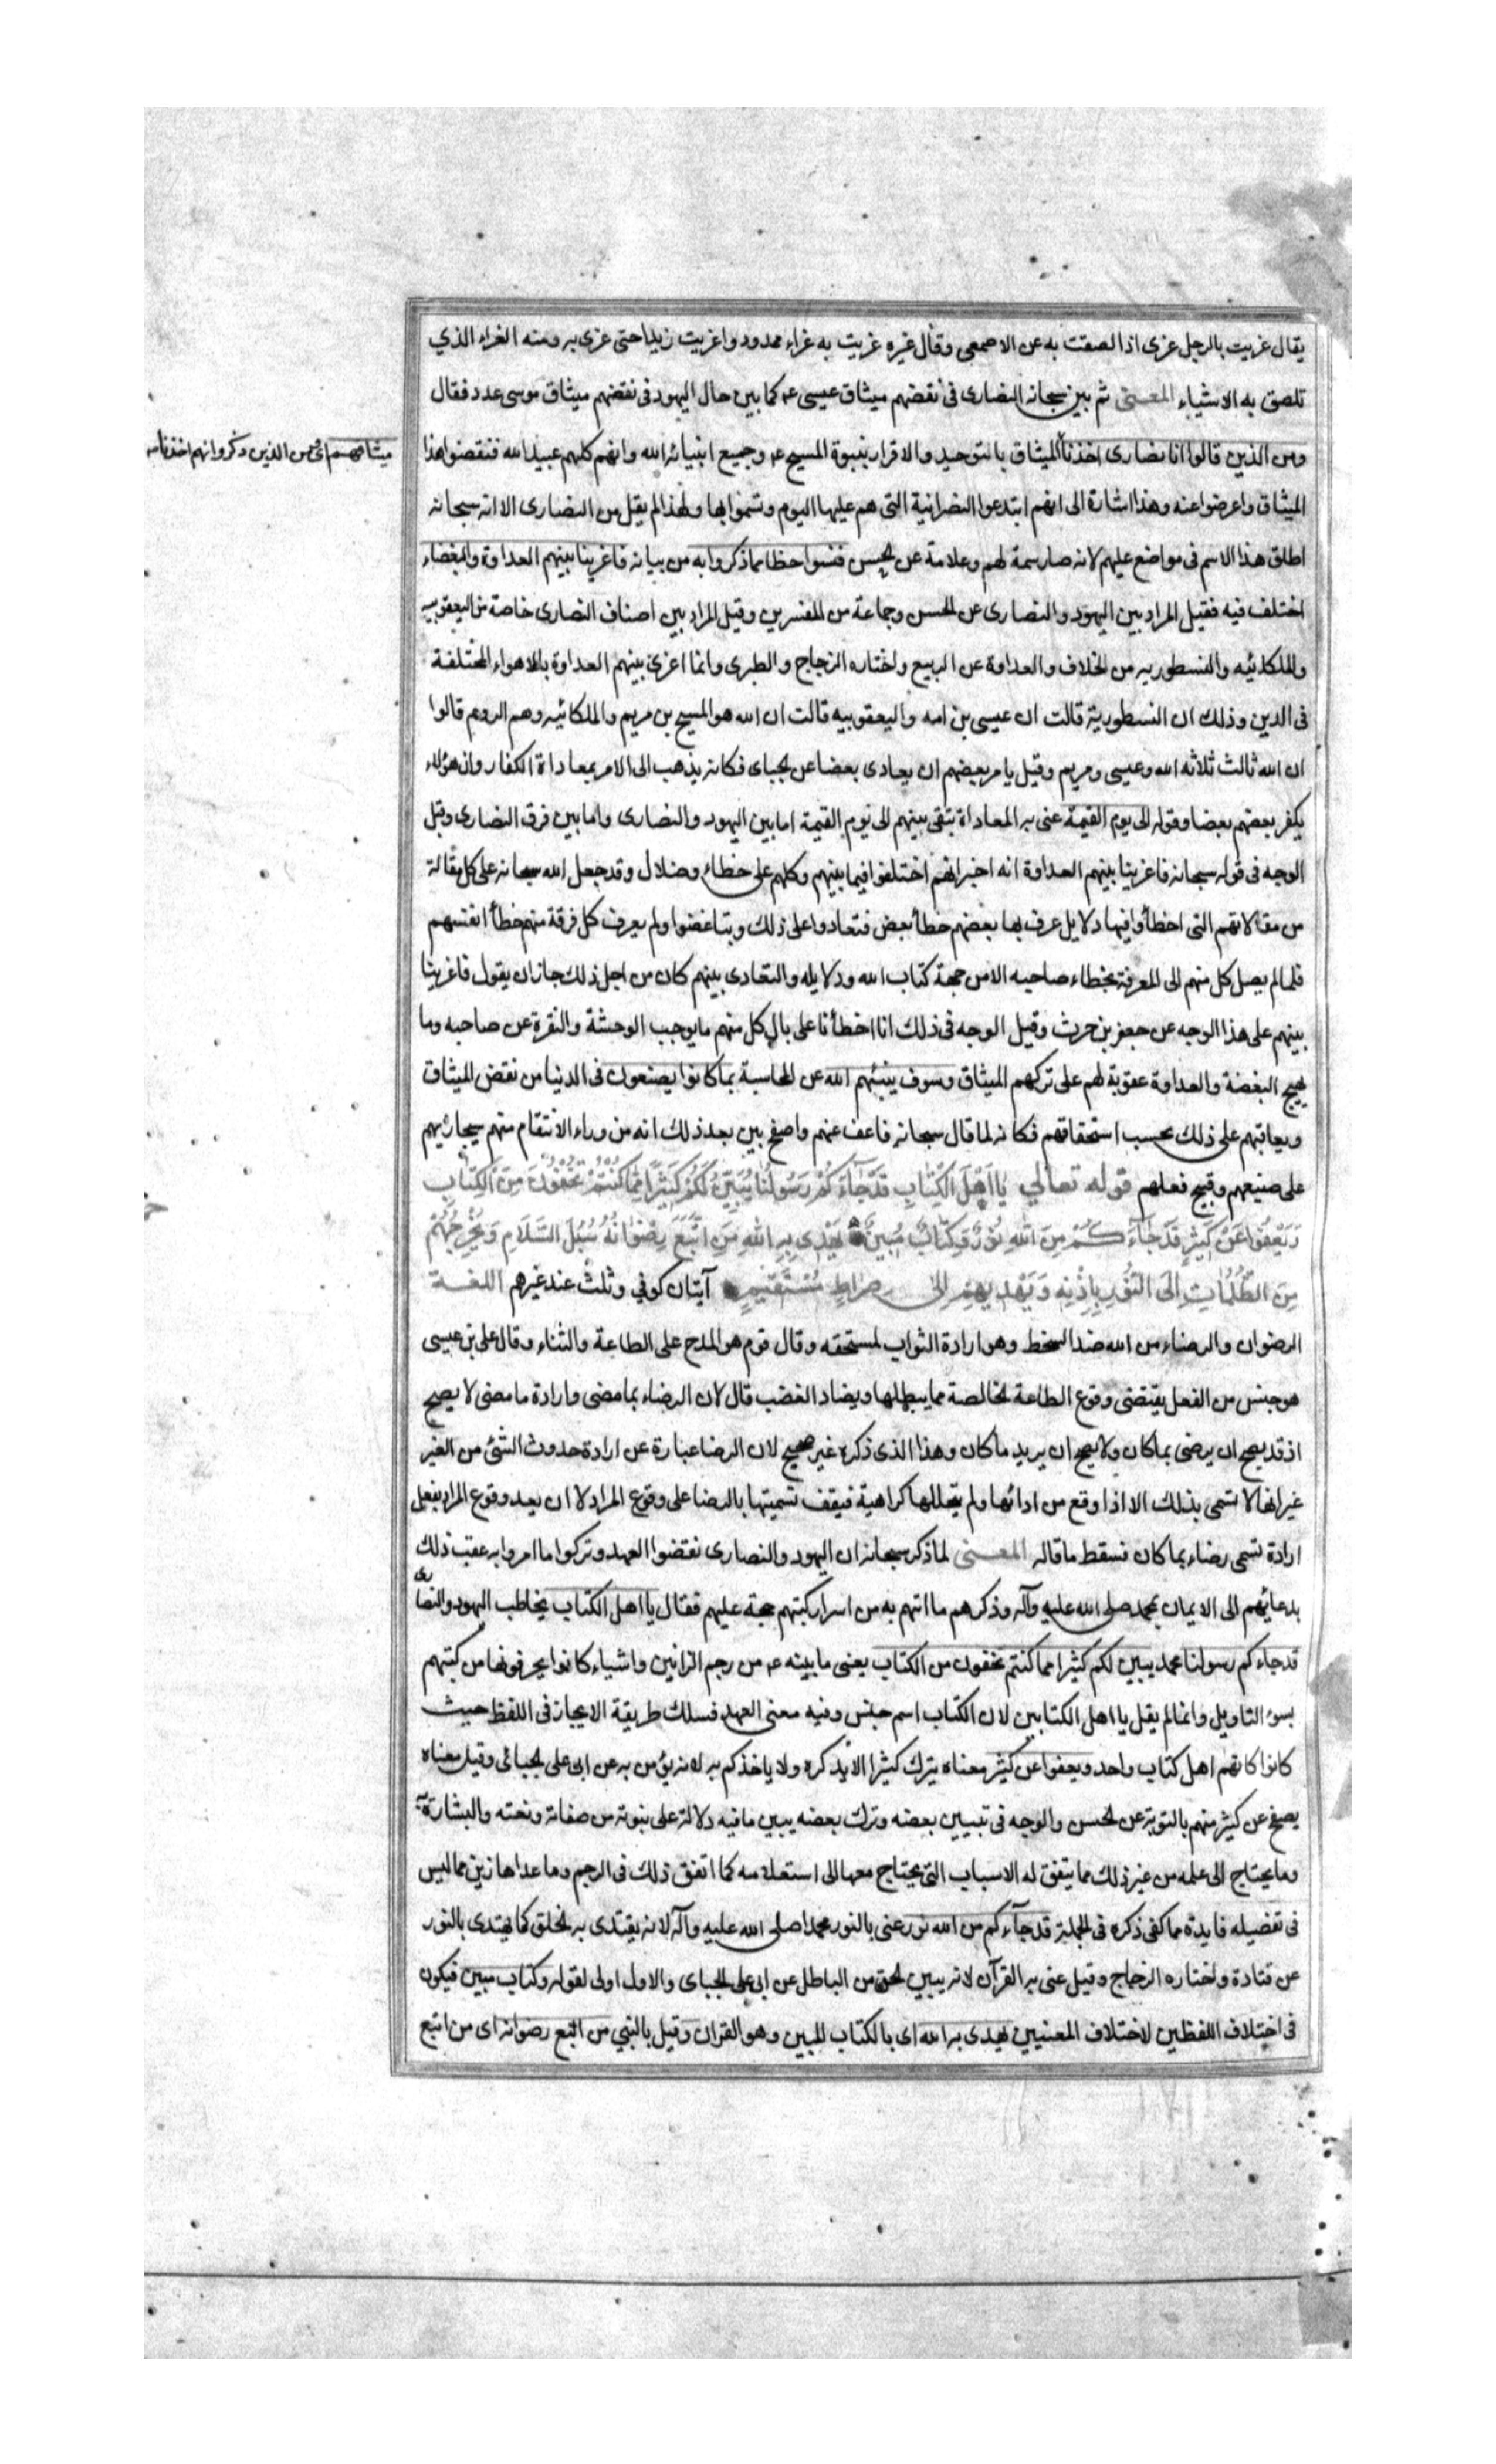 يقال غريت بالرجل غرى اذا لصقت به عن الاصمعى وقال غيره غريت به غراء ممدود واغريت زيدا حتى غرى به ومنه الغراء الذي
تلصق به الاشياء المعنى ثم بين سبحانه النصارى فى نقضهم ميثاق عيسى ع كما بين حال اليهود فى نقضهم ميثاق موسى ع فقال
ومن الذين قالوا انا نصارى اخذنا الميثاق بالتوحيد والاقرار بنبوة المسيح ع وجميع انبياء الله وانهم كلهم عبيد الله فنقضوا هذا
ميثاقهم اى من الذين ذكروا انهم اخذنا
الميثاق واعرضوا عنه وهذا اشارة الى انهم ابتدعوا النصرانية التى هم عليها اليوم وتسموا بها ولهذا لم يقل من النصارى الا انه سبحانه
اطلق هذا الاسم فى مواضع عليهم لانه صار سمة لهم وعلامة عن الحسن فنسوا حظا مما ذكروا به من بيانه فاغرينا بينهم العداوة والبغضاء
اختلف فيه فقيل المراد بين اليهود والنصارى عن الحسن وجماعة من المفسرين وقيل المراد بين اصناف النصارى خاصة من اليعقوبيه
والملكائيه والنسطوريه من الخلاف والعداوة عن الربيع واختاره الزجاج والطبرى وانما اغرى بينهم العداوة بالاهواء المختلفة
فى الدين وذلك ان النسطورية قالت ان عيسى بن الله واليعقوبيه قالت ان الله هو المسيح بن مريم والملكائيه وهم الروم قالوا
ان الله ثالث ثلاثه الله وعيسى ومريم وقيل يامر بعضهم ان يعادى بعضا عن الجباى فكانه يذهب الى الامر بمعاداة الكفار وان هؤلاء
يكفر بعضهم بعضا وقوله الى يوم القيمة عنى به المعاداة تبقى بينهم الى يوم القيمة اما بين اليهود والنصارى واما بين فرق النصارى وقيل
الوجه فى قوله سبحانه فاغرينا بينهم العداوة انه اخبر انهم اختلفوا فيما بينهم وكلهم على خطاء وضلال وقد جعل الله سبحانه على كل مقالة
من مقالاتهم التى اخطأوا فيها دلايل عرف بها بعضهم خطأ بعض فتعادوا على ذلك وتباغضوا ولم يعرف كل فرقة منهم خطأ انفسهم
فلما لم يصل كل منهم الى المعرفة بخطاء صاحبه الا من جهة كتاب الله ودلايله والتعادى بينهم كان من اجل ذلك جاز ان يقول فاغرينا
بينهم على هذا الوجه عن جعفر بن حرث وقيل الوجه فى ذلك انا اخطأنا على بال كل منهم ما يوجب الوحشة والنفرة عن صاحبه وما
يهيج البغضة والعداوة عقوبة لهم على تركهم الميثاق وسوف ينبئهم الله عن المحاسبة بما كانوا يصنعون فى الدنيا من نقض الميثاق
ويعاقبهم على ذلك بحسب استحقاقهم فكانه لما قال سبحانه فاعف عنهم واصفح بين بعد ذلك انه من وراء الانتقام منهم سيجازيهم
على صنيعهم وقبيح فعلهم قوله تعالي يَا اَهْلَ الْكِتَابِ قَدْ جَاءَكُمْ رَسُولُنَا يُبَيِّنُ لَكُمْ كَثِيرًا مِمَّا كُنْتُمْ تُخْفُونَ مِنَ الْكِتَابِ
وَيَعْفُوا عَنْ كَثِيرٍ قَدْ جَاءَكُمْ مِنَ اللهِ نُورٌ وَكِتَابٌ مُبِينٌ يَهْدِى بِهِ اللهُ مَنِ اتَّبَعَ رِضْوَانَهُ سُبُلَ السَّلَامِ وَيُخْرِجُهُمْ
مِنَ الظُّلُمَاتِ اِلَى النُّورِ بِاِذْنِهِ وَيَهْدِيهِمْ اِلى صِرَاطٍ مُسْتَقِيمٍ آيتان كوفي وثلث عند غيرهم اللغة
الرضوان والرضاء من الله ضد السخط وهو ارادة الثواب لمستحقه وقال قوم هو المدح على الطاعة والثناء وقال على بن عيسى
هو جنس من الفعل يقتضى وقوع الطاعة الخالصة مما يبطلها ويضاد الغضب قال لان الرضاء بما مضى وارادة ما مضى لا يصح
اذ قد يصح ان يرضى بما كان ولا يصح ان يريد ما كان وهذا الذى ذكره غير صحيح لان الرضا عبارة عن ارادة حدوث الشئ من الغير
غير انها لا تسمى بذلك الا اذا وقع من ادائها ولم يتخللها كراهية فيقف تسميتها بالرضا على وقوع المراد لا ان بعد وقوع المراد بفعل
ارادة تسمى رضاء بما كان فسقط ما قاله المعنى لما ذكر سبحانه ان اليهود والنصارى نقضوا العهد وتركوا ما امروا به عقب ذلك
بدعائهم الى الايمان بمحمد صلى الله عليه وآله وذكرهم ما اتهم به من اسرار كتبهم حجة عليهم فقال يا اهل الكتاب يخاطب اليهود والنصارى
قد جاءكم رسولنا محمد يبين لكم كثيرا مما كنتم تخفون من الكتاب يعنى ما بينه ع من رجم الزانين واشياء كانوا يحرفونها من كتبهم
بسوء التاويل وانما لم يقل يا اهل الكتابين لان الكتاب اسم جنس وفيه معنى العهد فسلك طريقة الايجاز فى اللفظ حيث
كانوا كانهم اهل كتاب واحد ويعفوا عن كثير معناه يترك كثيرا لا يذكره ولا ياخذكم به لانه يؤمن به عن ابى على الجبائى وقيل معناه
يصفح عن كثير منهم بالتوبة عن الحسن والوجه فى تبيين بعضه وترك بعضه يبين ما فيه دلالة على نبوته من صفاته ونعته والبشارة به
وما يحتاج الى علمه من غير ذلك مما يتفق له الاسباب التى يحتاج معها الى استعلامه كما اتفق ذلك فى الرجم وما عدا هاذين مما ليس
فى تفضيله فايدة مما كفى ذكره فى الجملة قد جآءكم من الله نور عنى بالنور محمدا صلى الله عليه وآله لانه يقتدى به الخلق كما يهتدى بالنور
عن قتادة واختاره الزجاج وقيل عنى به القرآن لانه يبين الحق من الباطل عن ابى على الجباى والاول اولى لقوله وكتاب مبين فيكون
فى اختلاف اللفظين لاختلاف المعنيين يهدى به الله اى بالكتاب المبين وهو القران وقيل بالنبي من اتبع رضوانه اى من اتبع